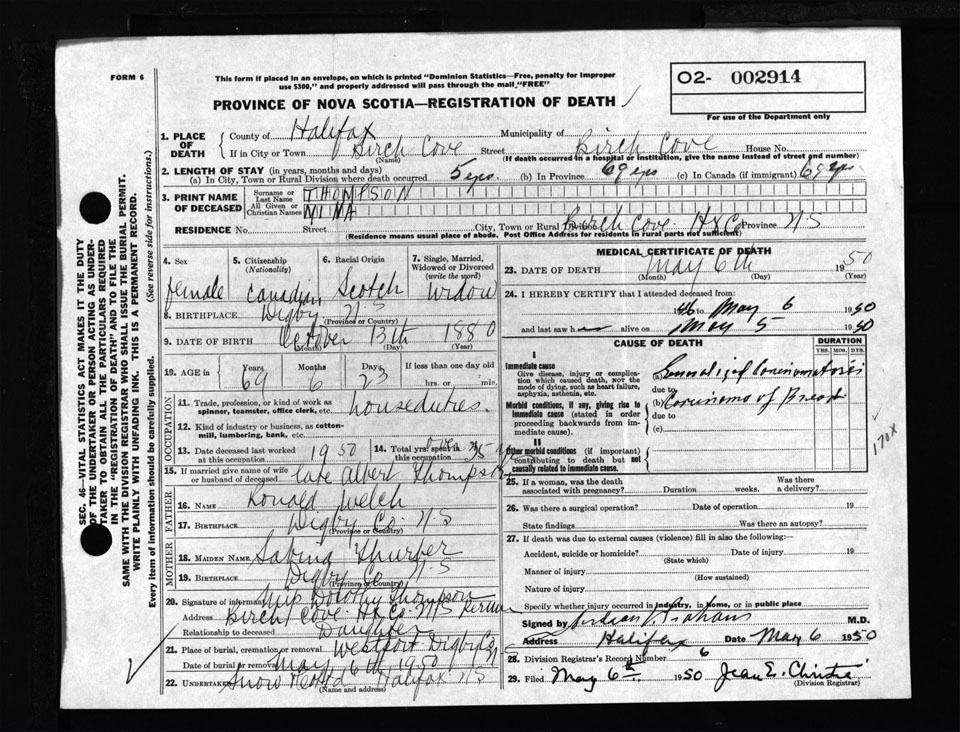 FORM 6
This form if placed in an envelope, on which is printed "Dominion Statistics—Free, penalty for improper
use $300," and properly addressed will pass through the mail "FREE"
O2- 002914
For use of the Department only
PROVINCE OF NOVA SCOTIA—REGISTRATION OF DEATH
1. PLACE OF DEATH { County of Halifax Municipality of
If in City or Town Birch Cove Street Birch Cove House No.
(Name) (If death occurred in a hospital or institution, give the name instead of street and number)
2. LENGTH OF STAY (in years, months and days)
(a) In City, Town or Rural Division where death occurred 5 yrs. (b) In Province 69 yrs (c) In Canada (if immigrant) 69 yrs.
3. PRINT NAME OF DECEASED { Surname or Last Name THOMPSON
All Given or Christian Names NINA
RESIDENCE No. Street City, Town or Rural Division Birch Cove Hx Co Province N.S
(Residence means usual place of abode. Post Office Address for residents in rural parts not sufficient)
4. Sex female
5. Citizenship (Nationality) Canadian
6. Racial Origin Scotch
7. Single, Married, Widowed or Divorced (write the word) Widow
8. BIRTHPLACE Digby N.S
(Province or Country)
9. DATE OF BIRTH October 13th 1880
(Month) (Day) (Year)
10. AGE in { Years 69 Months 6 Days 23 If less than one day old
hrs. or min.
OCCUPATION
11. Trade, profession, or kind of work as spinner, teamster, office clerk, etc. houseduties.
12. Kind of industry or business, as cotton-mill, lumbering, bank, etc.
13. Date deceased last worked at this occupation 1950
14. Total yrs. spent in this occupation
15. If married give name of wife or husband of deceased Late Albert Thompson
FATHER
16. NAME Ronald Welch
17. BIRTHPLACE Digby Co. N.S
(Province or Country)
MOTHER
18. MAIDEN NAME Sabina Thurber
19. BIRTHPLACE Digby Co N.S
(Province or Country)
20. Signature of informant Miss Dorothy Thompson
Address Birch Cove Hx Co N.S
Relationship to deceased Daughter
21. Place of burial, cremation or removal Westport Digby Co N.S
Date of burial or removal May 6th 1950
22. UNDERTAKER Snow Halifax N.S
(Name and address)
MEDICAL CERTIFICATE OF DEATH
23. DATE OF DEATH May 6th 1950
(Month) (Day) (Year)
24. I HEREBY CERTIFY that I attended deceased from:
46 to May 6 1950
and last saw her alive on May 5 1950
CAUSE OF DEATH DURATION
YRS. MOS. DYS.
I
Immediate cause
Give disease, injury or complication which caused death, NOT the mode of dying, such as heart failure, asphyxia, asthenia, etc.
(a) Generalized Carcinomatosis
due to
Morbid conditions, if any, giving rise to immediate cause (stated in order proceeding backwards from immediate cause).
(b) Carcinoma of Breast
due to
(c)
II
Other morbid conditions (if important) contributing to death but not causally related to immediate cause.
170X
25. If a woman, was the death associated with pregnancy? Duration weeks. Was there a delivery?
26. Was there a surgical operation? Date of operation 19
State findings Was there an autopsy?
27. If death was due to external causes (violence) fill in also the following:—
Accident, suicide or homicide? Date of injury 19
(State which)
Manner of injury
(How sustained)
Nature of injury
Specify whether injury occurred in industry, in home, or in public place
Signed by Graham M.D.
Address Halifax Date May 6 1950
28. Division Registrar's Record Number 6
29. Filed May 6th 1950 Jean E. Christie
(Division Registrar)
SEC. 46—VITAL STATISTICS ACT MAKES IT THE DUTY
OF THE UNDERTAKER OR PERSON ACTING AS UNDER-
TAKER TO OBTAIN ALL THE PARTICULARS REQUIRED
IN THE "REGISTRATION OF DEATH" AND TO FILE THE
SAME WITH THE DIVISION REGISTRAR WHO SHALL ISSUE THE BURIAL PERMIT.
WRITE PLAINLY WITH UNFADING INK. THIS IS A PERMANENT RECORD.
Every item of information should be carefully supplied. (See reverse side for instructions.)